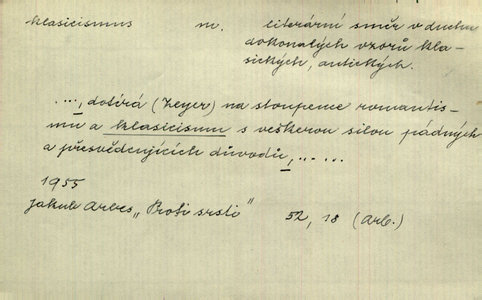 klasicismus m. literární směr v duchu
dokonalých vzorů kla-
sických, antických.
...., dotírá (Zeyer) na stoupence romantis-
mu a klasicismu s veškerou silou pádných
a přesvědčujících důvodů, .....
1955
Jakub Arbes „Proti srsti" 52, 18 (Arb.)